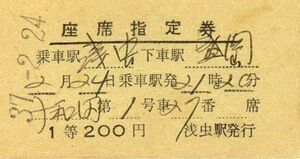 座席指定券
乗車駅 浅虫 下車駅 盛岡
2月24日乗車駅発21時20分
十和田 第1号車27番 席
1等200円 浅虫駅発行
37.-2.24